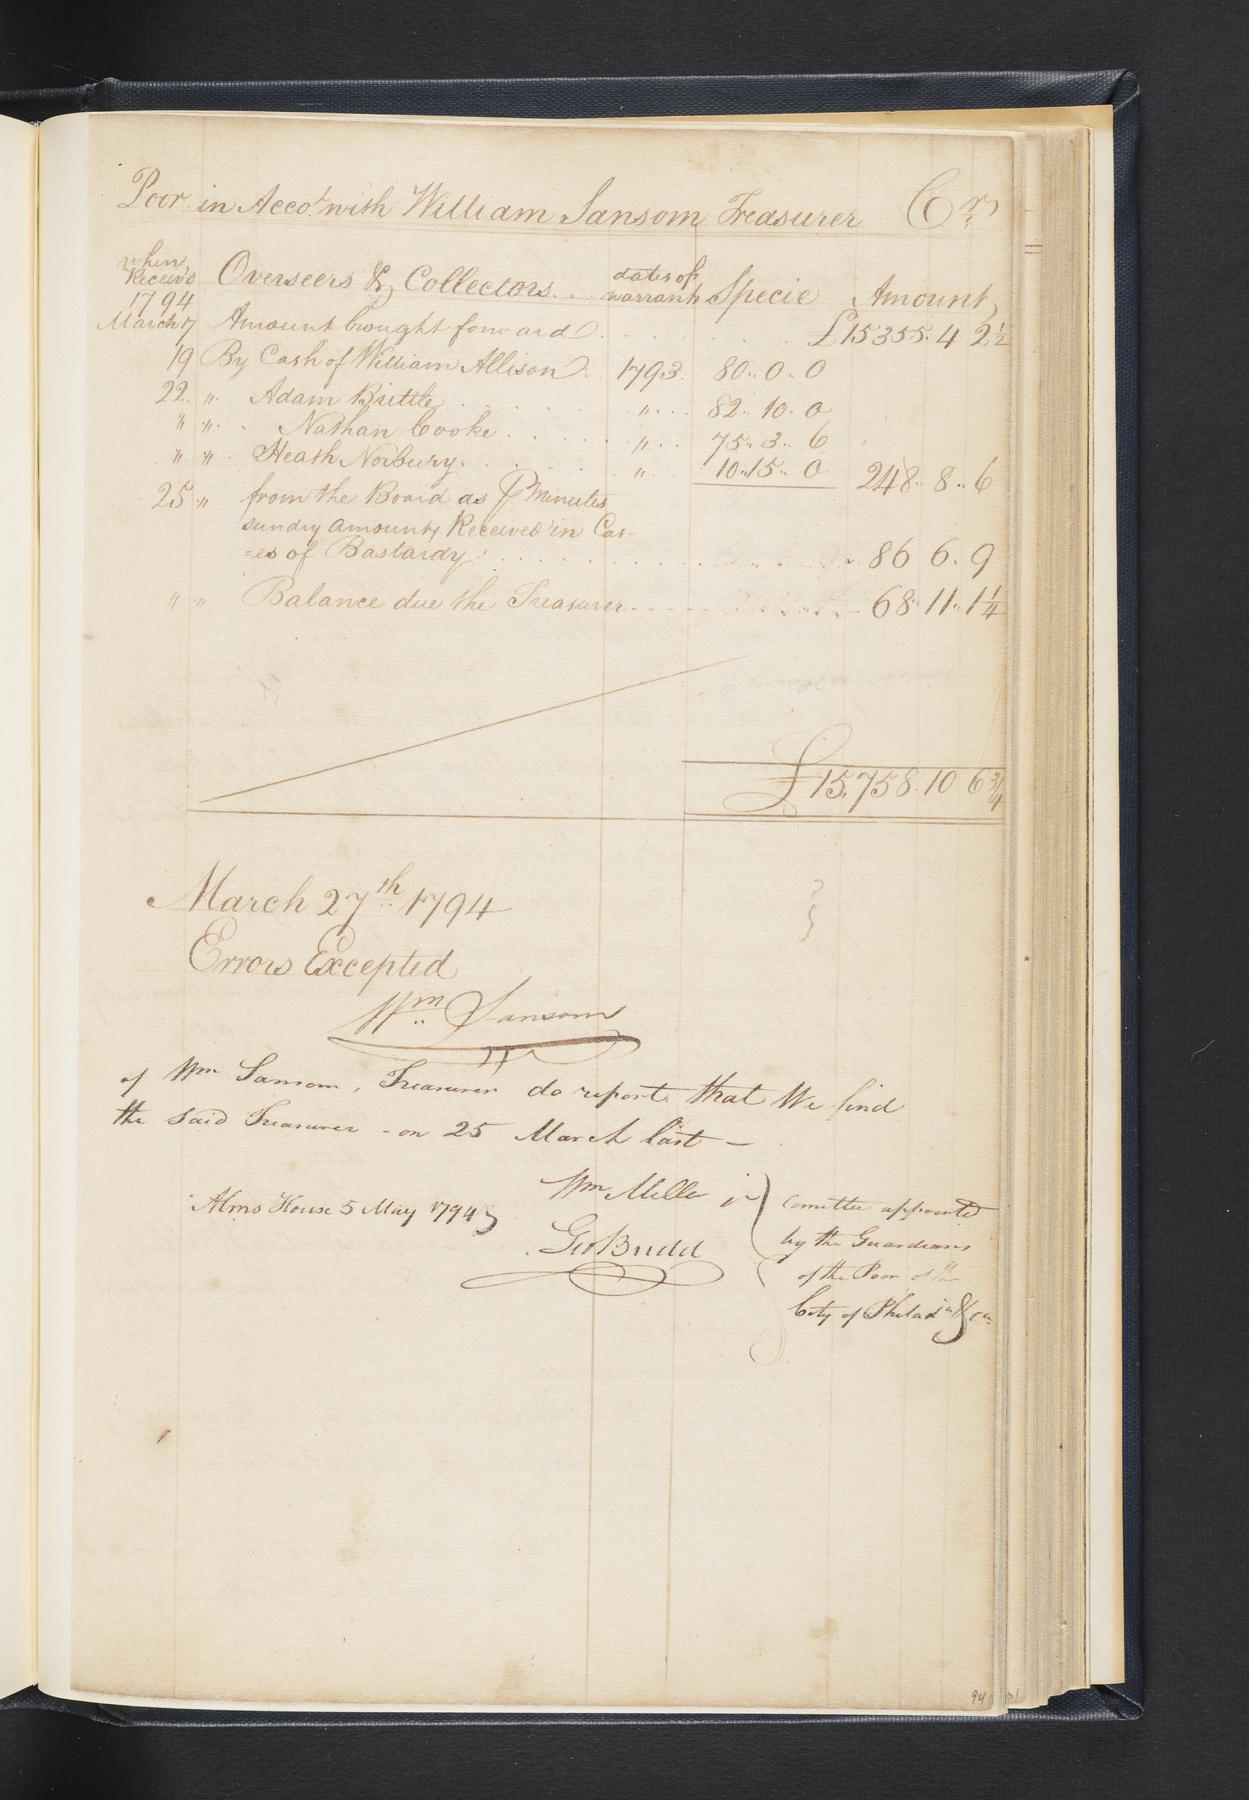 Poor in Acco.t with William Sansom Treasurer Cr
when Receiv'd Overseers & Collectors dates of warrants Specie Amount
1794
March 17 Amount brought forward £15355. 4 2½
19 By Cash of William Allison 1793 80..0.0
22 " Adam Brittle " 82..10.0
" " Nathan Cooke " 75..3..6
" " Heath Norbury " 10..15..0 248..8..6
25 " from the Board as ⅌ Minutes
sundry amounts Received in Cas-
=es of Bastardy 86 6.9
" " Balance due the Treasurer 68..11..1¼
£15,758.10 6¾
March 27th 1794
Errors Excepted
Wm Sansom
of Wm Sansom, Treasurer do report that We find
the said Treasurer - on 25 March last —
Alms House 5 May 1794
Wm Miller jr
Geo Budd
Comittee appointed
by the Guardians
of the Poor of the
City of Philada &ca
94